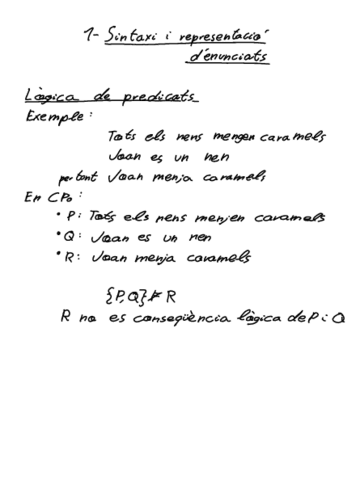 1- Sintaxi i representació
d'enunciats
Lògica de predicats
Exemple:
Tots els nens mengen caramels
Joan es un nen
per tant Joan menja caramels
En CP₀:
• P: Tots els nens menjen caramels
• Q: Joan es un nen
• R: Joan menja caramels
{P,Q} ⊭ R
R no es conseqüència lògica de P i Q